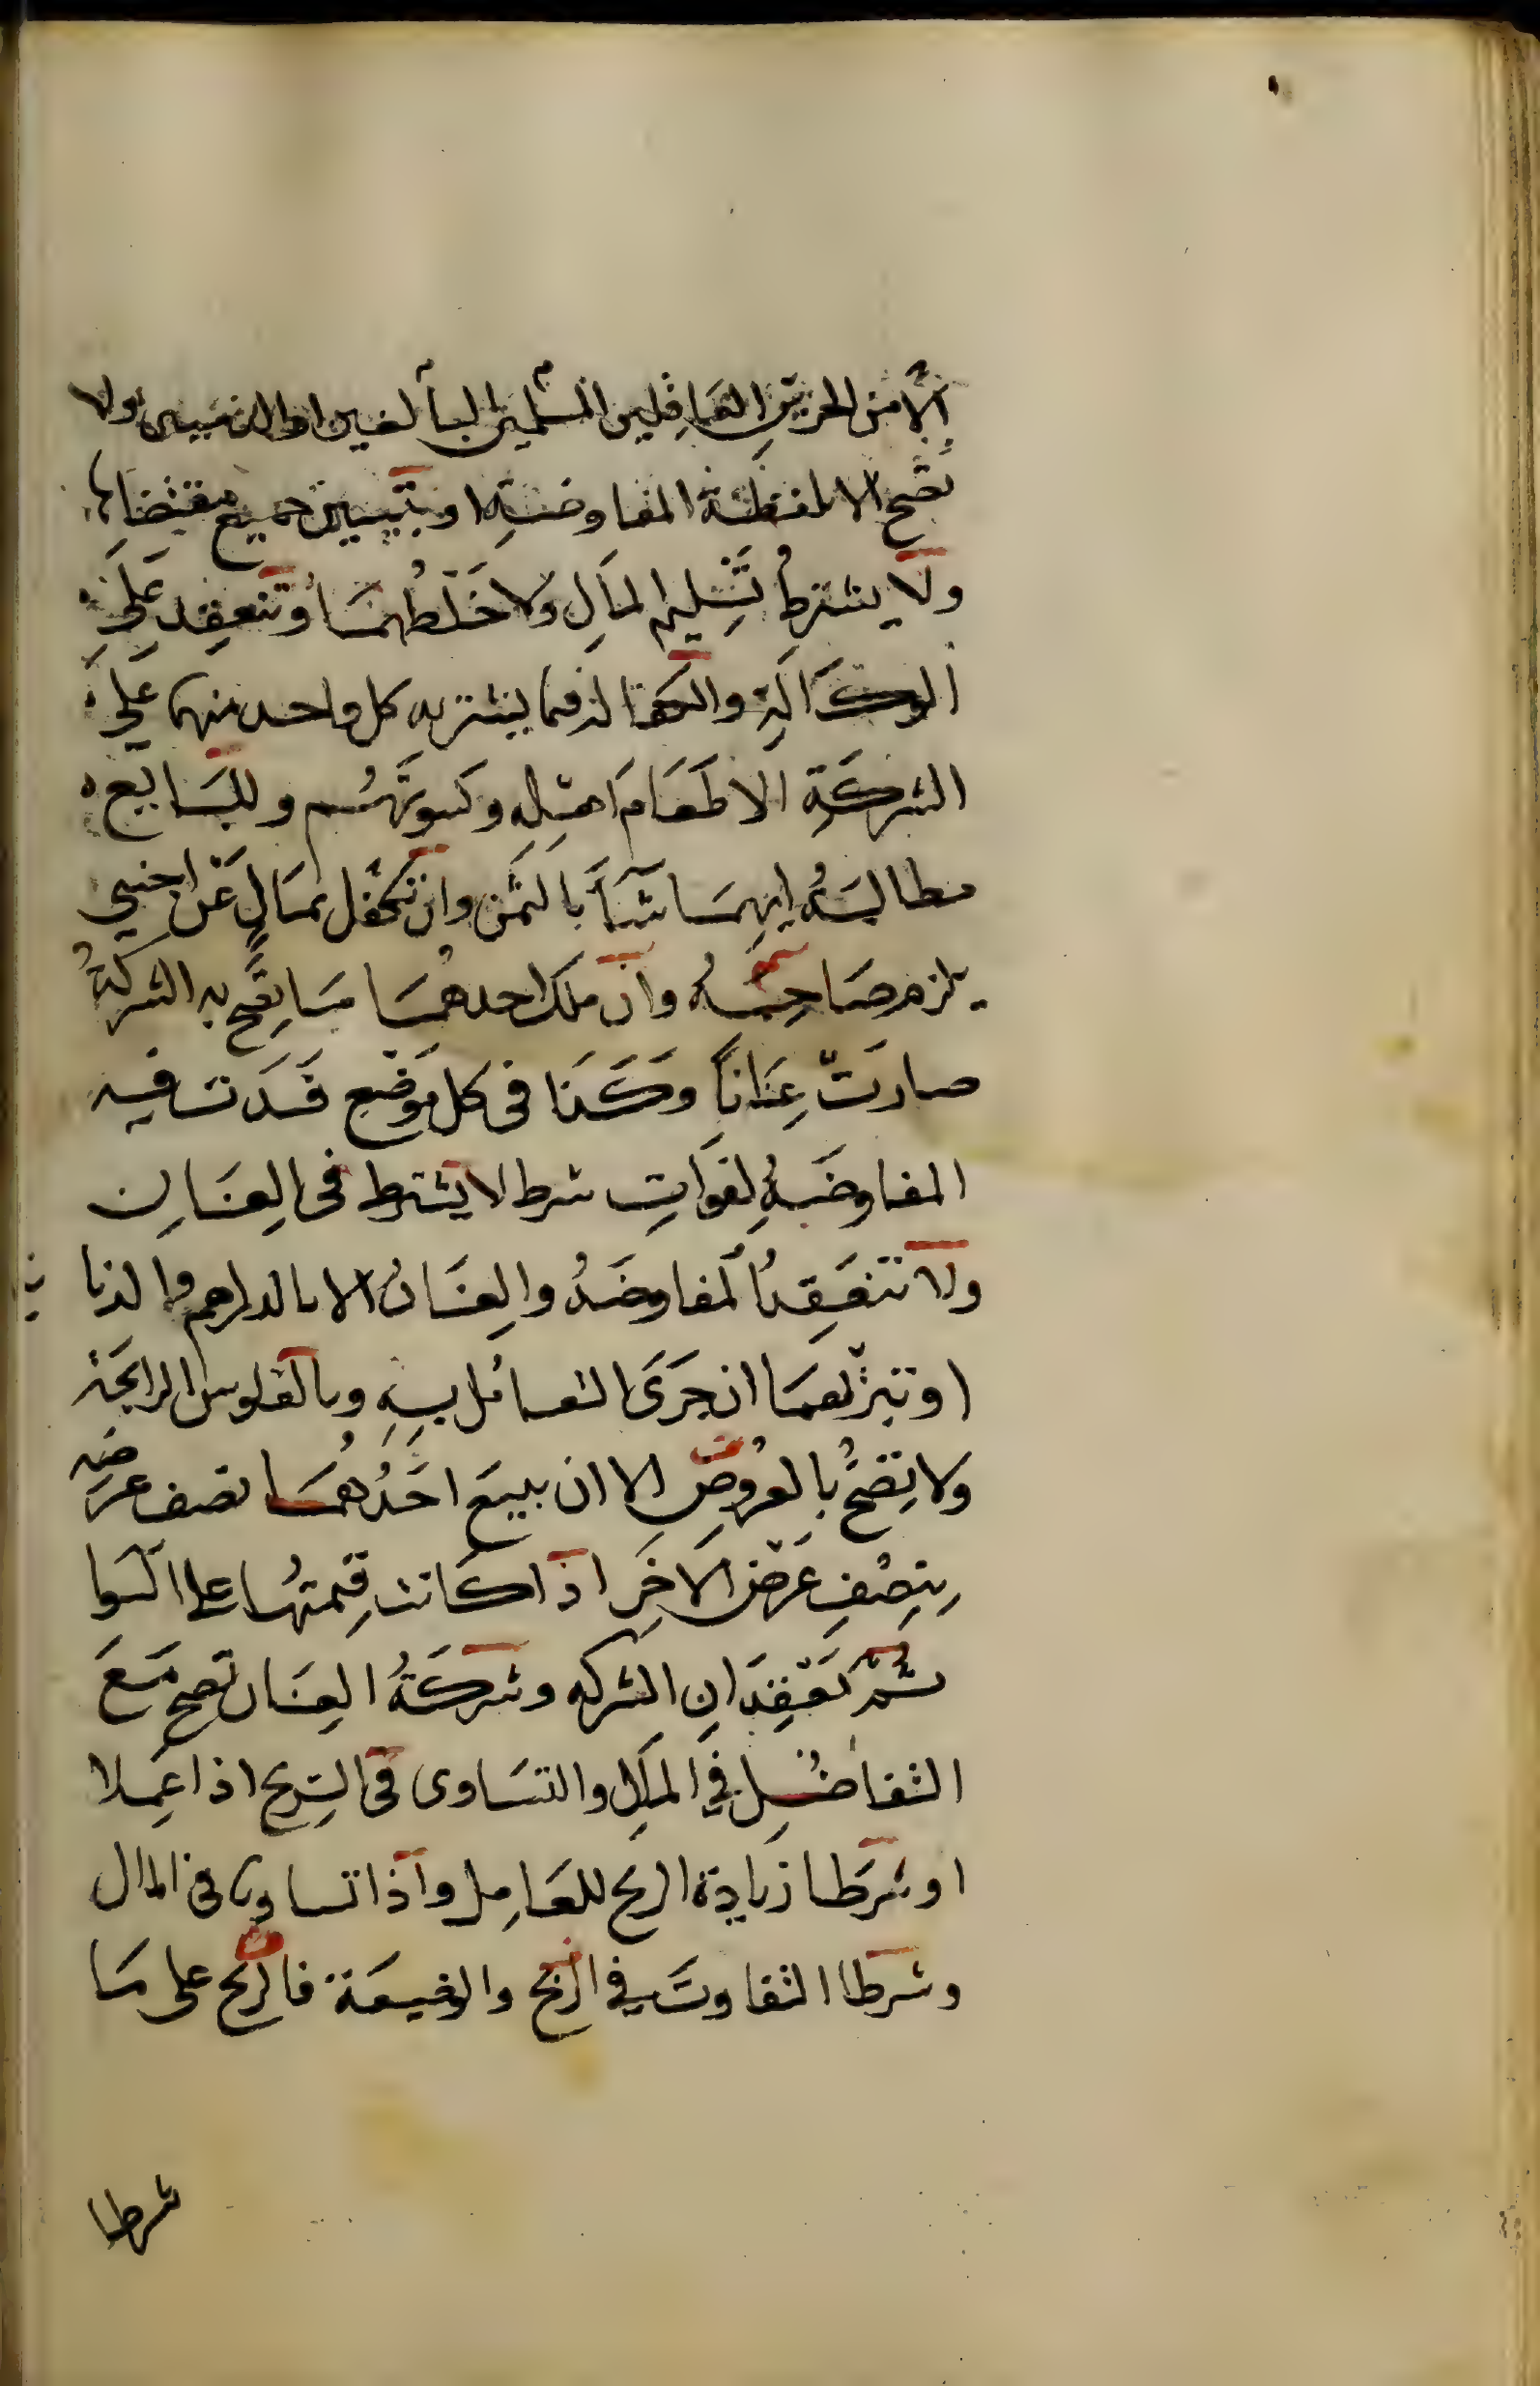 الا من الحرين العاقلين المسلمين البالغين او الذميين ولا
تصح الا بلفظة المفاوضة او تبيين جميع مقتضاها
ولا يشترط تسليم المال ولا خلطهما وتنعقد على
الوكالة والكفالة فما يشتريه كل واحد منهما على
الشركة الا طعام اهله وكسوتهم وللبايع
مطالبة ايهما شآ بالثمن وان تكفل بمال عن اجنبي
يلزم صاحبه وان ملك احدهما ما تصح به الشركة
صارت عنانا وكذا في كل موضع فسدت فيه
المفاوضة لفوات شرط لا يشترط في العنان
ولا تنعقد المفاوضة والعنان الا بالدراهم والدنا
نير
او تبرهما ان جرى التعامل به وبالفلوس الرايجة
ولا تصح بالعروض الا ان يبيع احدهما نصف عرضه
بنصف عرض الاخر اذا كانت قيمتهما على السوا
ثم يعقدان الشركه وشركة العنان تصح مع
التفاضل في المال والتساوى في الربح اذا عملا
او شرطا زيادة الربح للعامل واذا تساويا في المال
وشرطا التفاوت في الربح والوضيعة فالربح على ما
شرطا